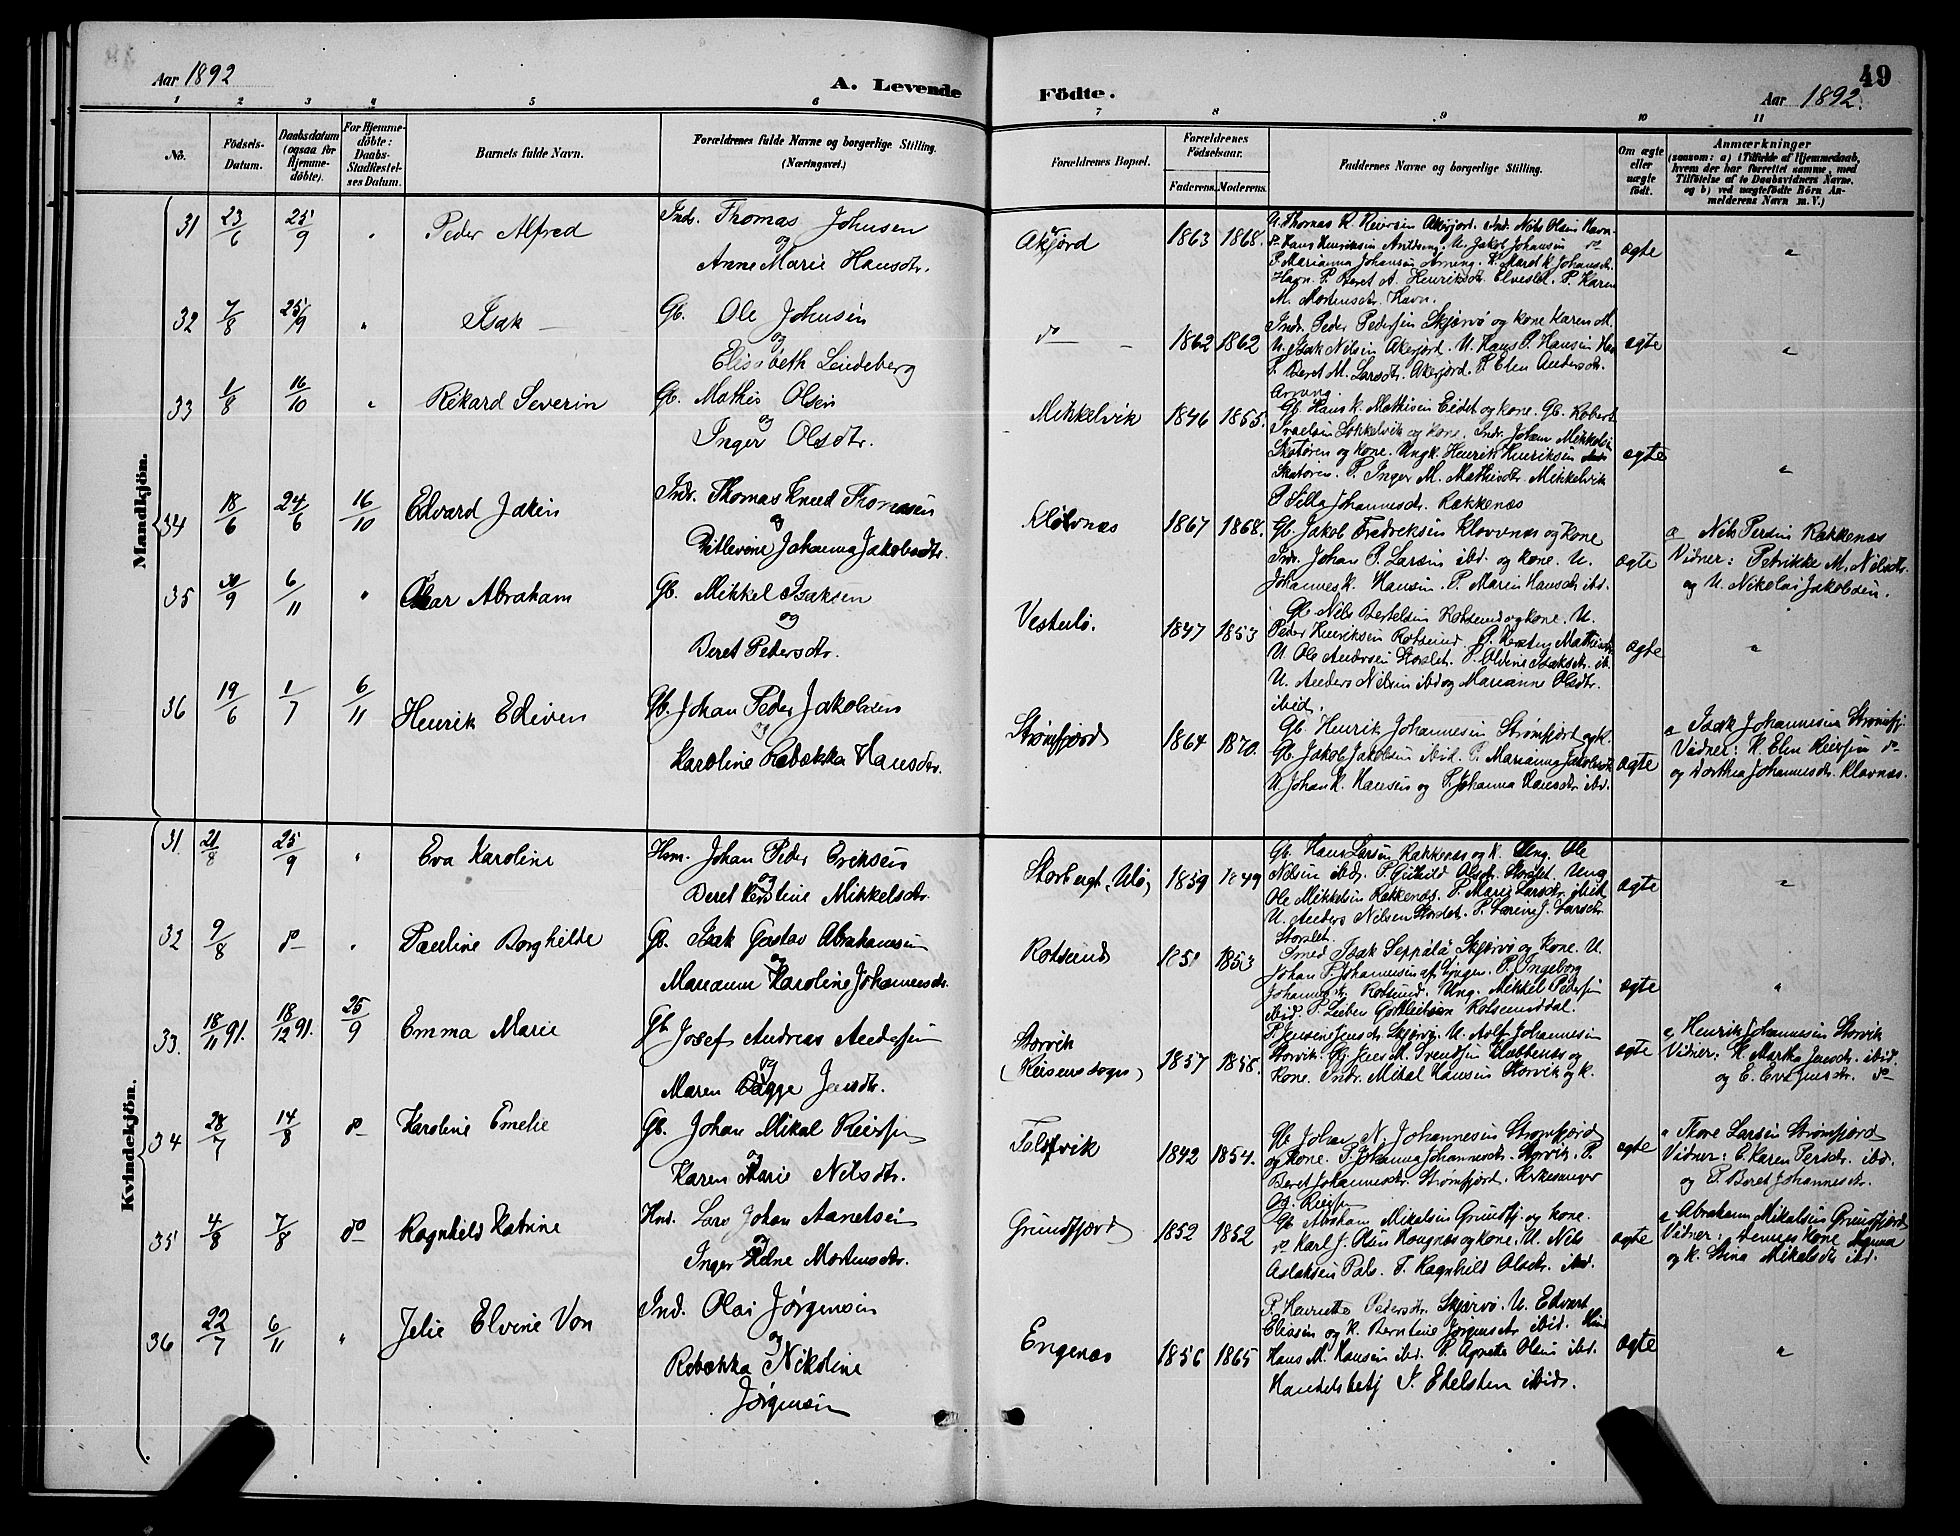 Aar 1892
A. Levende Födte.
49
Aar 1892.
1 2 3 4 5 6 7 8 9 10 11
No.
Födsels-Datum.
Daabsdatum (ogsaa for Hjemme-döbte).
For Hjemme-döbte: Daabs-Stadfæstel-ses Datum.
Barnets fulde Navn.
Forældrenes fulde Navne og borgerlige Stilling. (Næringsvei.)
Forældrenes Bopæl.
Forældrenes Födselsaar.
Faderens. Moderens.
Faddernes Navne og borgerlige Stilling.
Om ægte eller uægte födt.
Anmærkninger
(saasom: a) i Tilfælde af Hjemmedaab, hvem der har forrettet samme, med Tilföielse af to Daabsvidners Navne, og b) ved uægtefödte Börn An-melderens Navn m. V.)
Mandkjön.
31 23/6 25/9 " Peder Alfred
Ind. Thomas Johnsen
og
Anne Marie Hansdtr.
Akjørd 1863 1868.
Havn. P. Beret A. Henriksdtr. Elveslet. P. Karen
M. Mortensdtr. Havn.
ægte "
32 7/8 25/9 " Isak —
Gb. Ole Johnsen
og
Elisabeth Lindeberg
do — 1862 1862
Indr. Peder Pedersen Skjærvø og kone Karen M.
U. Isak Nilsen Akerjord. U. Hans P. Hansen
P. Beret M. Larsdtr. Akerjord. P. Elen Andersdtr.
ægte "
33 1/8 16/10 " Rikard Severin
Gb. Mathis Olsen
og
Inger Olsdtr.
Mikkelvik 1846 1855.
Gb. Hans K. Mathisen Eidet og kone. Gb. Robert
og kone. Indr. Johan Mikkelsen
Skatøren og kone. Ungk. Henrik Henriksen
Skatøren. P. Inger M. Mathisdtr. Mikkelvik
P. Johannesdtr. Rakkenæs
ægte "
34 18/6 24/6 16/10 Edvard Jakin
Indr. Thomas Knud Thomassen
og
Ditlevine Johanna Jakobsdtr.
Kløvnæs 1867 1868.
Gb. Jakob Fredriksen Klovnæs og kone
Indr. Johan P. Larsen ibd. og kone. U.
Johannes K. Hansen. P. Maren Hansdtr. ibd.
ægte
a Nils Persen Rakkenæs
Vidner: Petrikke M. Nilsdtr.
og U. Nikolai Jakobsen.
35 30/9 6/11 " Oskar Abraham
Gb. Mikkel Isaksen
og
Beret Pedersdtr.
Vesterlö. 1847 1853
Gb. Nils Bertelsen Rotsund og kone. U.
Peder Henriksen Rotsund. P.
U. Ole Andersen Storslet. P. Oldine Isaksdtr. ib.
U. Anders Nilsen ibd og Marianne Olsdtr.
ibid.
ægte "
36 19/6 1/7 6/11 Henrik Edivin
Gb. Johan Peder Jakobsen
og
Karoline Rebekka Hansdtr.
Strømfjord 1864 1870.
Gb. Henrik Johannesen Strømfjord og k.
Gb. Jakob Jakobsen ibid. P. Marianna Jakobsdtr.
U. Johan K. Hansen og P. Johanna Hansdtr. ibd.
ægte
a Isak Johannesen Strømfj.
Vidner: K. Elen Reiersen do
og Dorthea Johannesdtr. Klovnæs.
Kvindekjön.
31. 21/8 25/9 " Eva Karoline
Hsm. Johan Peder Eriksen
og
Beret Kerstine Mikkelsdtr.
Storbugt, Ulö, 1859 1849
Gb. Hans Larsen Rakkenæs og k. Ung. Ole
Nilsen ibd. P. Olsdtr. Storslet. Ung
Ole Mikkelsen Rakkenæs. P. Marie Larsdtr. ibid
U. Anders Nilsen Storslet. P. Larsdtr.
Storslet.
ægte "
32 9/8 do " Pauline Borghilde
Gb. Isak Gustav Abrahamsen
og
Marianne Karoline Johannesdtr.
Rotsund 1851 1853
Smed Isak Seppälä Skjærvø og kone. U.
Johan P. Johannesen af Lyngen. P. Ingeborg
Johannesdtr. Rotsund. Ung. Mikkel Pedersen
ibid. Rotsunddal.
ægte "
33. 18/11 91. 18/12 91. 25/9 Emma Marie
Gb. Josef Andreas Andersen
og
Maren Jensdtr.
Storvik
(Reisens sogn) 1857 1858.
Storvik. Gb. Jens M. Svendsen og
kone. Indr. Mikal Hansen Storvik og k.
ægte
a Henrik Johannesen Storvik
Vidner: K. Marka Jensdtr. ibid.
og E. Eva Jensdtr. do
34 28/7 14/8 do Karoline Emelie
Gb. Johan Mikal Reiersen
og
Karen Marie Nilsdtr.
1842 1854.
Gb. Johan N. Johannesen Strømfjord
og kone. P. Johanna Johannesdtr. Storvik. P.
Beret Johannesdtr. Strømfjord. Kirkesanger
Og. Reiersen
ægte
a Thore Larsen Strømfjord
Vidner: E. Karen Persdtr. ibd.
og P. Beret Johannesdtr.
35 4/8 7/8 do Ragnhild Katrine
Ind. Lars Johan Aanetsen
og
Inger Helene Mortensdtr.
Grundfjord 1852 1852
Gb. Abraham Mikalsen Grundfj. og kone.
do Karl J. Olsen Haugnæs og kone. U. Nils
Aslaksen Pals. P. Ragnhild Olsdtr. ibd.
ægte
a Abraham Mikalsen Grundfjord
Vidner: dennes kone
og K. Stina Mikalsdtr ibd.
36 22/7 6/11 " Jelie Elvine Von
Ind. Olai Jørgensen
og
Rebekka Nikoline
Jørgensen
Engenæs 1856 1865
P. Henriette Pedersdtr. Skjærvø. U. Edvart
Eliasen og K. Berntine Jørgensdtr ibid.
Hans M. Hansen ibd. P. Agnette Olsen ibd.
Handelsbetj. J. Ebeltsen ibid.
ægte "